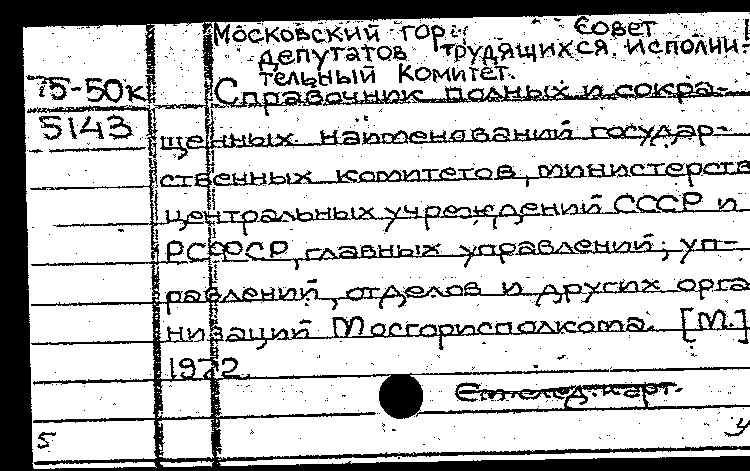 Московский гор. Совет
депутатов трудящихся. исполни-
тельный комитет.
75-50к Справочник полных и сокра-
5143 щенных наименований государ-
ственных комитетов, министерств
центральных учреждений СССР и
РСФСР, главных управлений; уп-
равлений, отделов и других орга
низаций Мосгорисполкома. [М.]
1972.
См.след.карт.
5